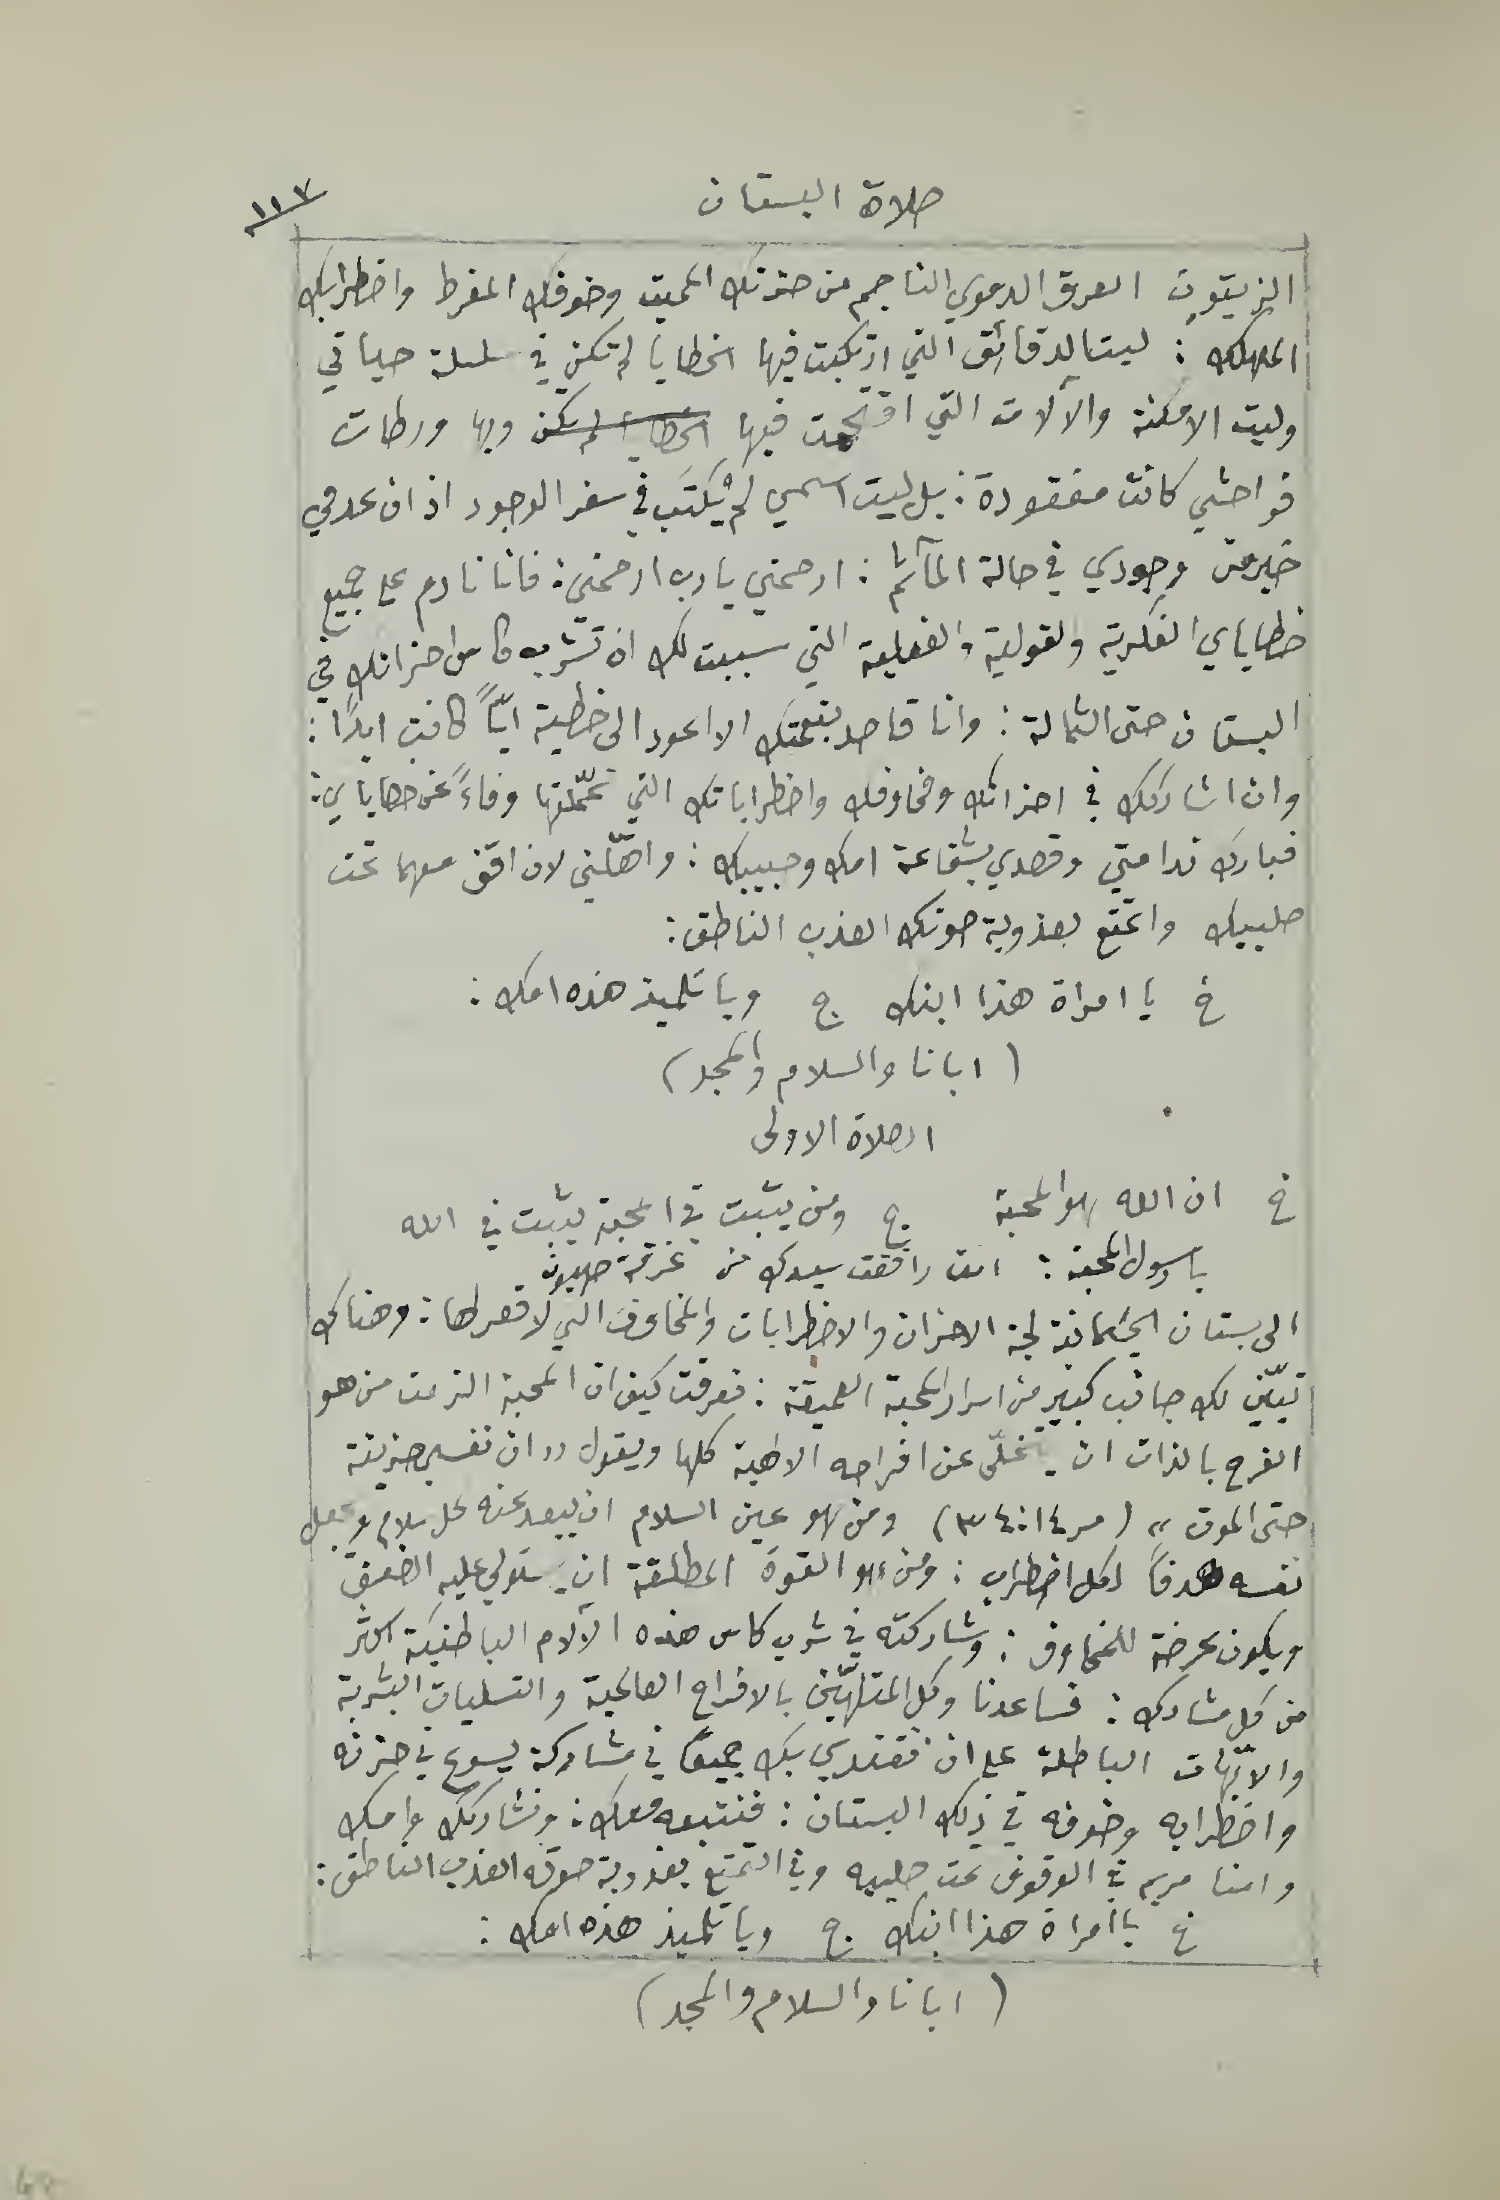 صلاة البستان
١١٧
الزيتون العرق الدموي الناجم من حزنك المميت وخوفك المفرط واضطرابك
المهلك : ليت الدقائق التي ارتكبت فيها الخطايا لم تكن في سلسلة حياتي
وليت الامكنة والآلات التي اقتحمت فيها الخطايا لم تكن وبها ورطات
فواحشي كانت مفقودة : بل ليت اسمي لم يُكتَب في سفر الوجود اذ ان عدمي
خير من وجودي في حالة المآثم : ارحمني يا رب ارحمني : فانا نادم على جميع
خطاياي الفكرية والقولية والفعلية التي سببت لك ان تشرب كاس احزانك في
البستان حتى الثمالة : وانا قاصد بنعمتك الا اعود الى خطية ايّاً كانت ابدًا :
وان اشاركك في احزانك ومخاوفك واضطراباتك التي تحمّلتها وفاءً عن خطاياي :
فبارك ندامتي وقصدي بشفاعة امك وحبيبك : واهّلني لان اقف معهما تحت
صليبك واتمتع بعذوبة صوتك العذب الناطق :
خ يا امراة هذا ابنك ج ويا تلميذ هذه امك :
( ابانا والسلام والمجد )
الصلاة الاولى
خ ان الله هو المحبة ج ومن يثبت في المحبة يثبت في الله
يا رسول المحبة : انت رافقت سيدك من غرفة صهيون
الى بستان الجسمانية لجة الاحزان والاضطرابات والمخاوف التي لا قعر لها : وهناك
تبيّن لك جانب كبير من اسرار المحبة العميقة : فعرفت كيف ان المحبة الزمت من هو
الفرح بالذات ان يتخلّى عن افراحه الالهية كلها ويقول " ان نفسي حزينة
حتى الموت " ( مر ١٤ : ٣٤ ) ومن هو عين السلام ان يبعد عنه كل سلام ويجعل
نفسه هدفاً لكل اضطراب : ومن هو القوة المطلقة ان يستولي عليه الضعف
ويكون عرضة للمخاوف : وشاركته في شرب كاس هذه الآلام الباطنية اكثر
من كل مشارك : فساعدنا وكل المتلهّين بالافراح العالمية والتسليات البشرية
والابّهات الباطلة على ان نقتدي بك جميعًا في مشاركة يسوع في حزنه
واضطرابه وخوفه في ذلك البستان : فنتبعه معك : ونشاركك وامك
وامنا مريم في الوقوف تحت صليبه وفي التمتع بعذوبة صوته العذب الناطق :
خ يا امراة هذا ابنك ج ويا تلميذ هذه امك :
( ابانا والسلام والمجد )